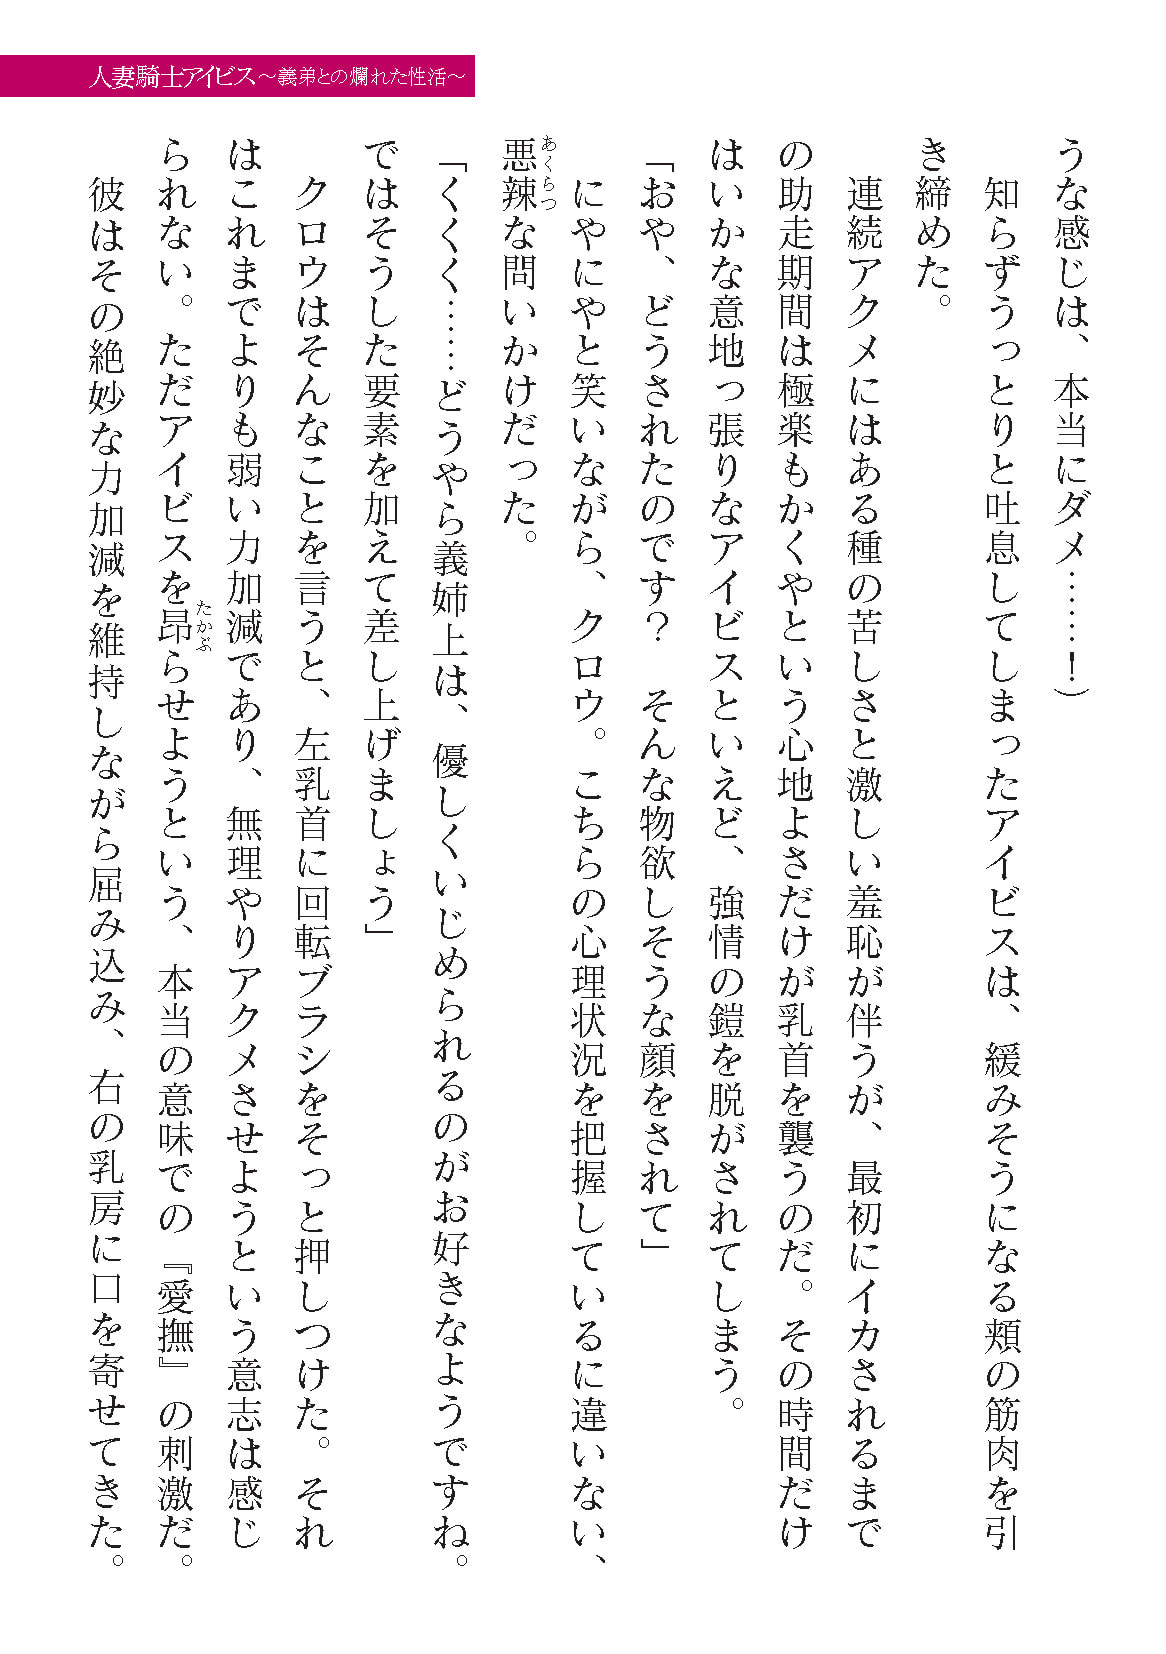 人妻騎士アイビス～義弟との爛れた性活～
うな感じは、本当にダメ……！）
　知らずうっとりと吐息してしまったアイビスは、緩みそうになる頬の筋肉を引
き締めた。
　連続アクメにはある種の苦しさと激しい羞恥が伴うが、最初にイカされるまで
の助走期間は極楽もかくやという心地よさだけが乳首を襲うのだ。その時間だけ
はいかな意地っ張りなアイビスといえど、強情の鎧を脱がされてしまう。
「おや、どうされたのです？　そんな物欲しそうな顔をされて」
　にやにやと笑いながら、クロウ。こちらの心理状況を把握しているに違いない、
悪辣な問いかけだった。
「くくく……どうやら義姉上は、優しくいじめられるのがお好きなようですね。
ではそうした要素を加えて差し上げましょう」
　クロウはそんなことを言うと、左乳首に回転ブラシをそっと押しつけた。それ
はこれまでよりも弱い力加減であり、無理やりアクメさせようという意志は感じ
られない。ただアイビスを昂らせようという、本当の意味での『愛撫』の刺激だ。
　彼はその絶妙な力加減を維持しながら屈み込み、右の乳房に口を寄せてきた。
あくらつ
たかぶ